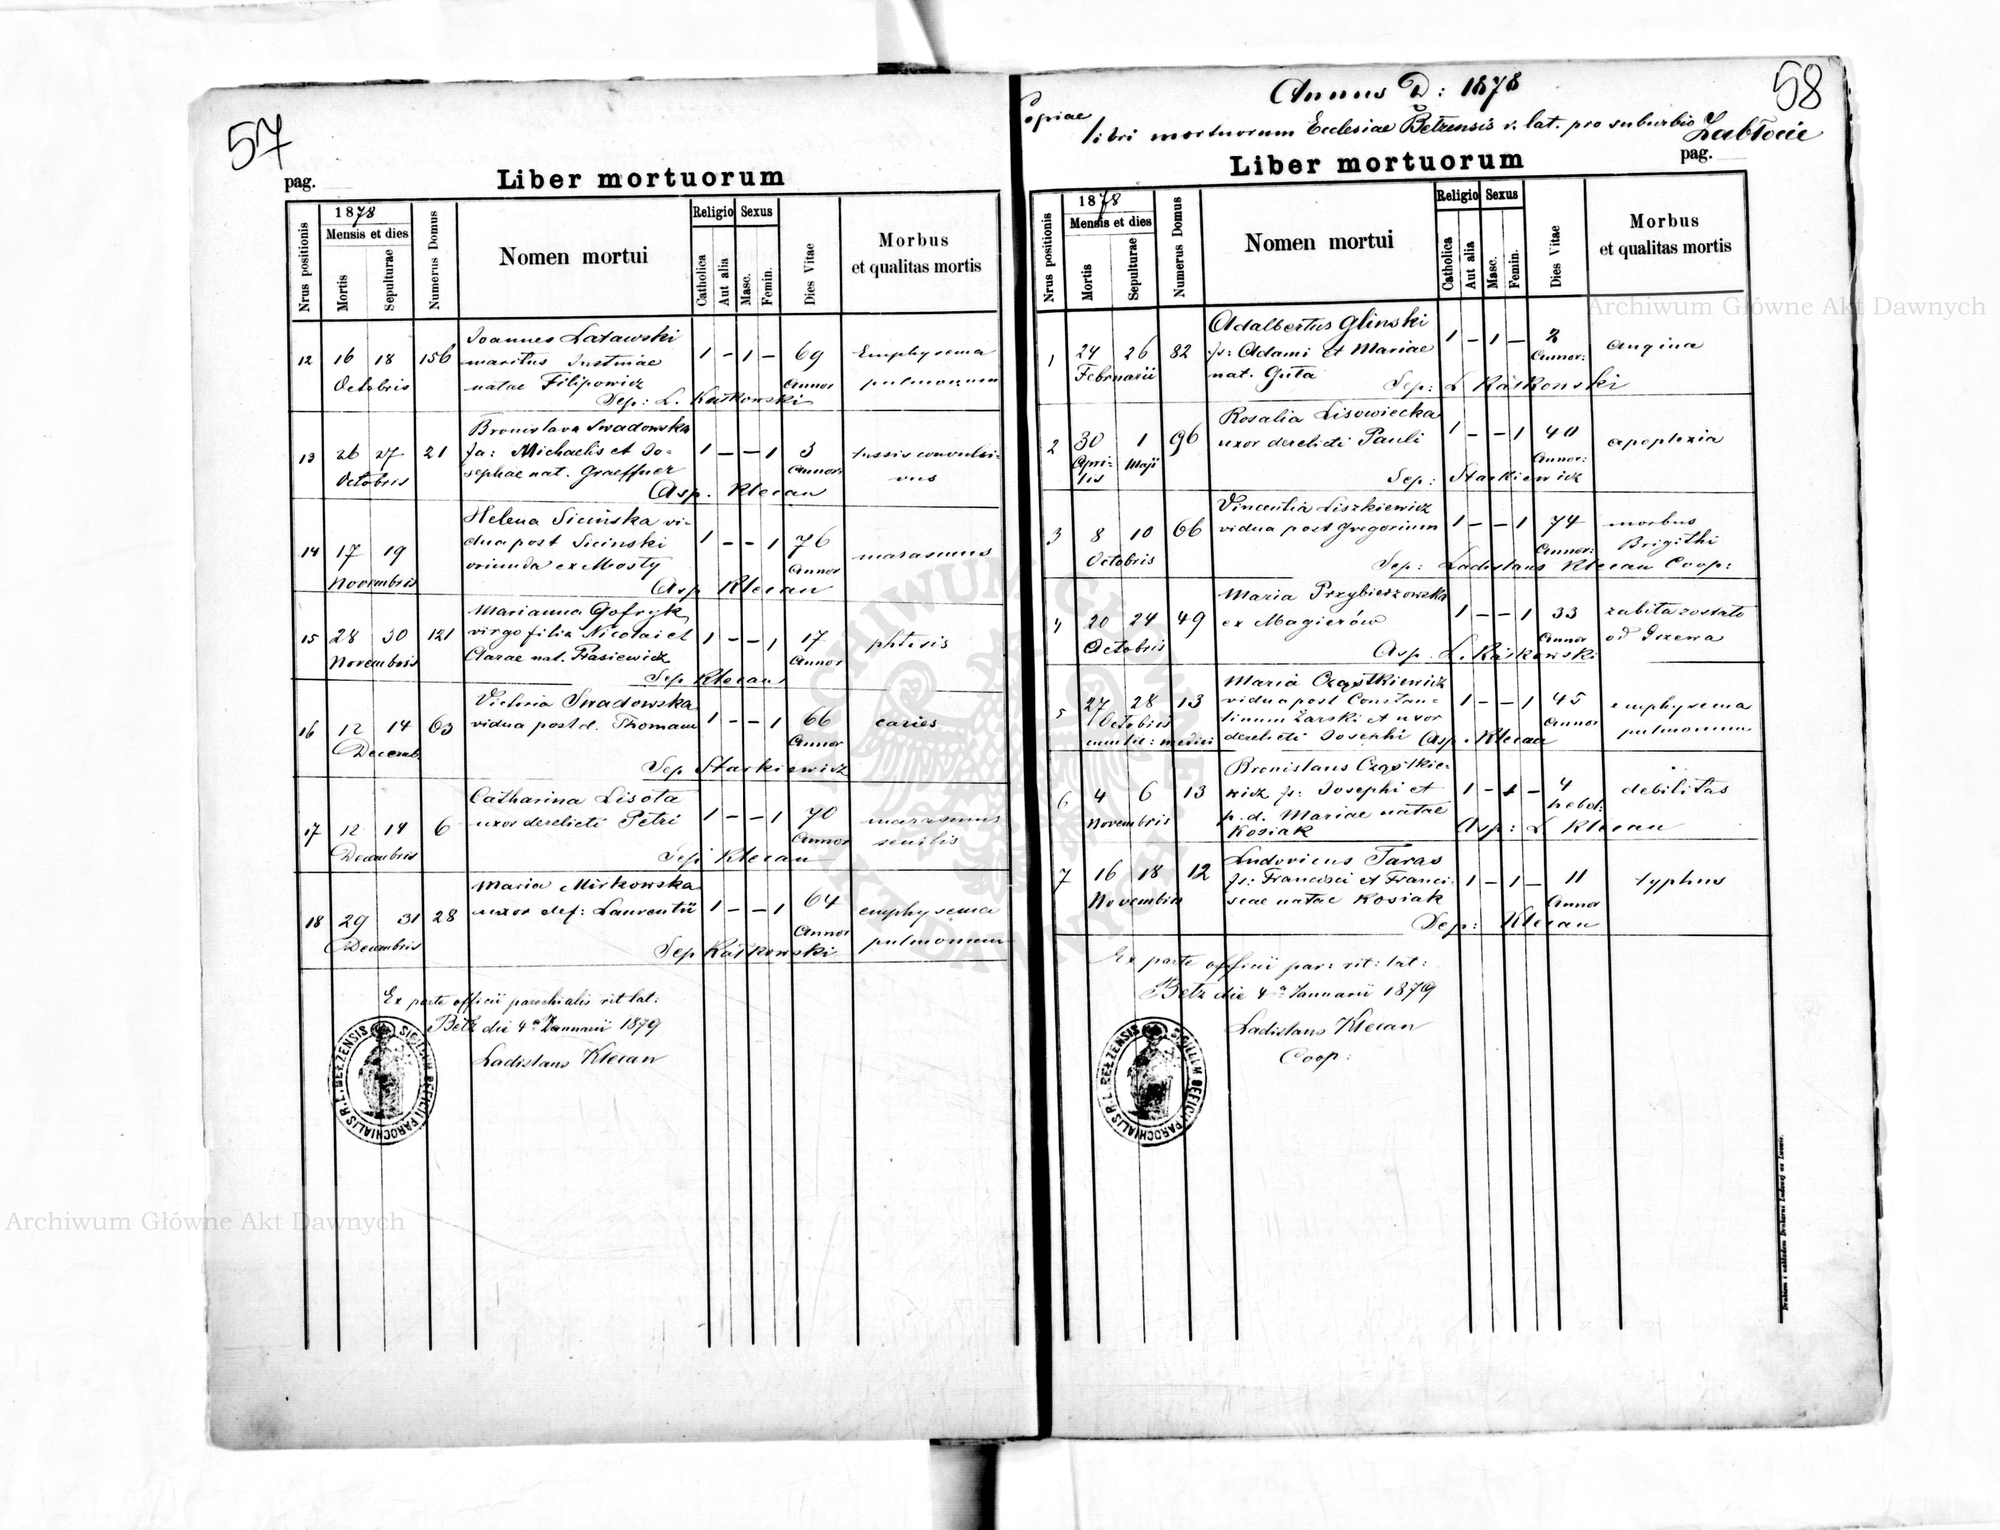 57
pag.
Liber mortuorum
Nrus positionis
1878
Mensis et dies
Mortis
Sepulturae
Numerus Domus
Nomen mortui
Religio
Catholica
Aut alia
Sexus
Masc.
Femin.
Dies Vitae
Morbus
et qualitas mortis
12 16 18 156 Joannes Latawski 1 – 1 – 69 Emphysema
Octobris maritus Justinae Annor pulmonum
natae Filipowicz
Sep: L. Kátkowski
13 26 27 21 Bronislava Swadowska 1 – – 1 3 tussis convulsi-
Octobris fa: Michaelis et Jo- Annor: vus
sephae nat. Graeffner
Asp. Klecan
14 17 19 Helena Sicińska vi- 1 – – 1 76 marasmus
Novembris dua post Sicinski Annor
oriunda ex Mosty
Asp Klecan
15 28 30 121 Marianna Gofryk 1 – – 1 17 phtisis
Novembris virgo filia Nicolai et Annor
Clarae nat. Prasiewicz
Sep Klecan
16 12 14 63 Victoria Swadowska 1 – – 1 66 caries
Decemb. vidua post d. Thomam Annor
Sep Starkiewicz
17 12 14 6 Catharina Lisota 1 – – 1 70 marasmus
Decembris uxor derelicti Petri Annor senilis
Sep Klecan
18 29 31 28 Maria Mirkowska 1 – – 1 64 emphysema
Decembris uxor def: Laurentii Annor pulmonum
Sep Kátkowski
Ex parte officii parochialis rit lat:
Bełz die 4ª Januarii 1879
Ladislaus Klecan
SIGILLUM OFFICII PAROCHIALIS R. L. BEŁZENSIS
58
Annus D: 1878
Copiae libri mortuorum Ecclesiae Bełzensis r. lat. pro suburbio Zabłocie
pag.
Liber mortuorum
Nrus positionis
1878
Mensis et dies
Mortis
Sepulturae
Numerus Domus
Nomen mortui
Religio
Catholica
Aut alia
Sexus
Masc.
Femin.
Dies Vitae
Morbus
et qualitas mortis
1 24 26 82 Adalbertus Glinski 1 – 1 – 2 angina
Februarii fs: Adami et Mariae Annor:
nat. Guta
Sep: L Kátkowski
2 30 1 96 Rosalia Lisowiecka 1 – – 1 40 apoplexia
Apri- Maji uxor derelicti Pauli Annor:
lis
Sep: Starkiewicz
3 8 10 66 Vincentia Liszkiewicz 1 – – 1 74 morbus
Octobris vidua post Gregorium Annor: Brigithi
Sep: Ladislaus Klecan Coop:
4 20 24 49 Maria Przybieszowska 1 – – 1 33 zabita została
Octobris ex Magierów Annor od drzewa
Asp. L. Kátkowski
5 27 28 13 Maria Cząstkiewicz 1 – – 1 45 emphysema
Octobris vidua post Constan- Annor pulmonum
tinum Żarski et uxor
derelicti Josephi Asp. Klecan
6 4 6 13 Bronislaus Cząstkie- 1 – 1 – 4 debilitas
Novembris wicz fs: Josephi et hebd:
p. d. Mariae natae
Kosiak
Asp: L Klecan
7 16 18 12 Ludovicus Taras 1 – 1 – 11 typhus
Novembris fs: Francisci et Franci- Annor
scae natae Kosiak
Sep: Klecan
Ex parte officii par: rit: lat:
Bełz die 4ª Januarii 1879
Ladislaus Klecan
Coop:
SIGILLUM OFFICII PAROCHIALIS R. L. BEŁZENSIS
Drukiem i nakładem Drukarni Ludowej we Lwowie.
Archiwum Główne Akt Dawnych
Archiwum Główne Akt Dawnych
ARCHIWUM GŁÓWNE AKT DAWNYCH